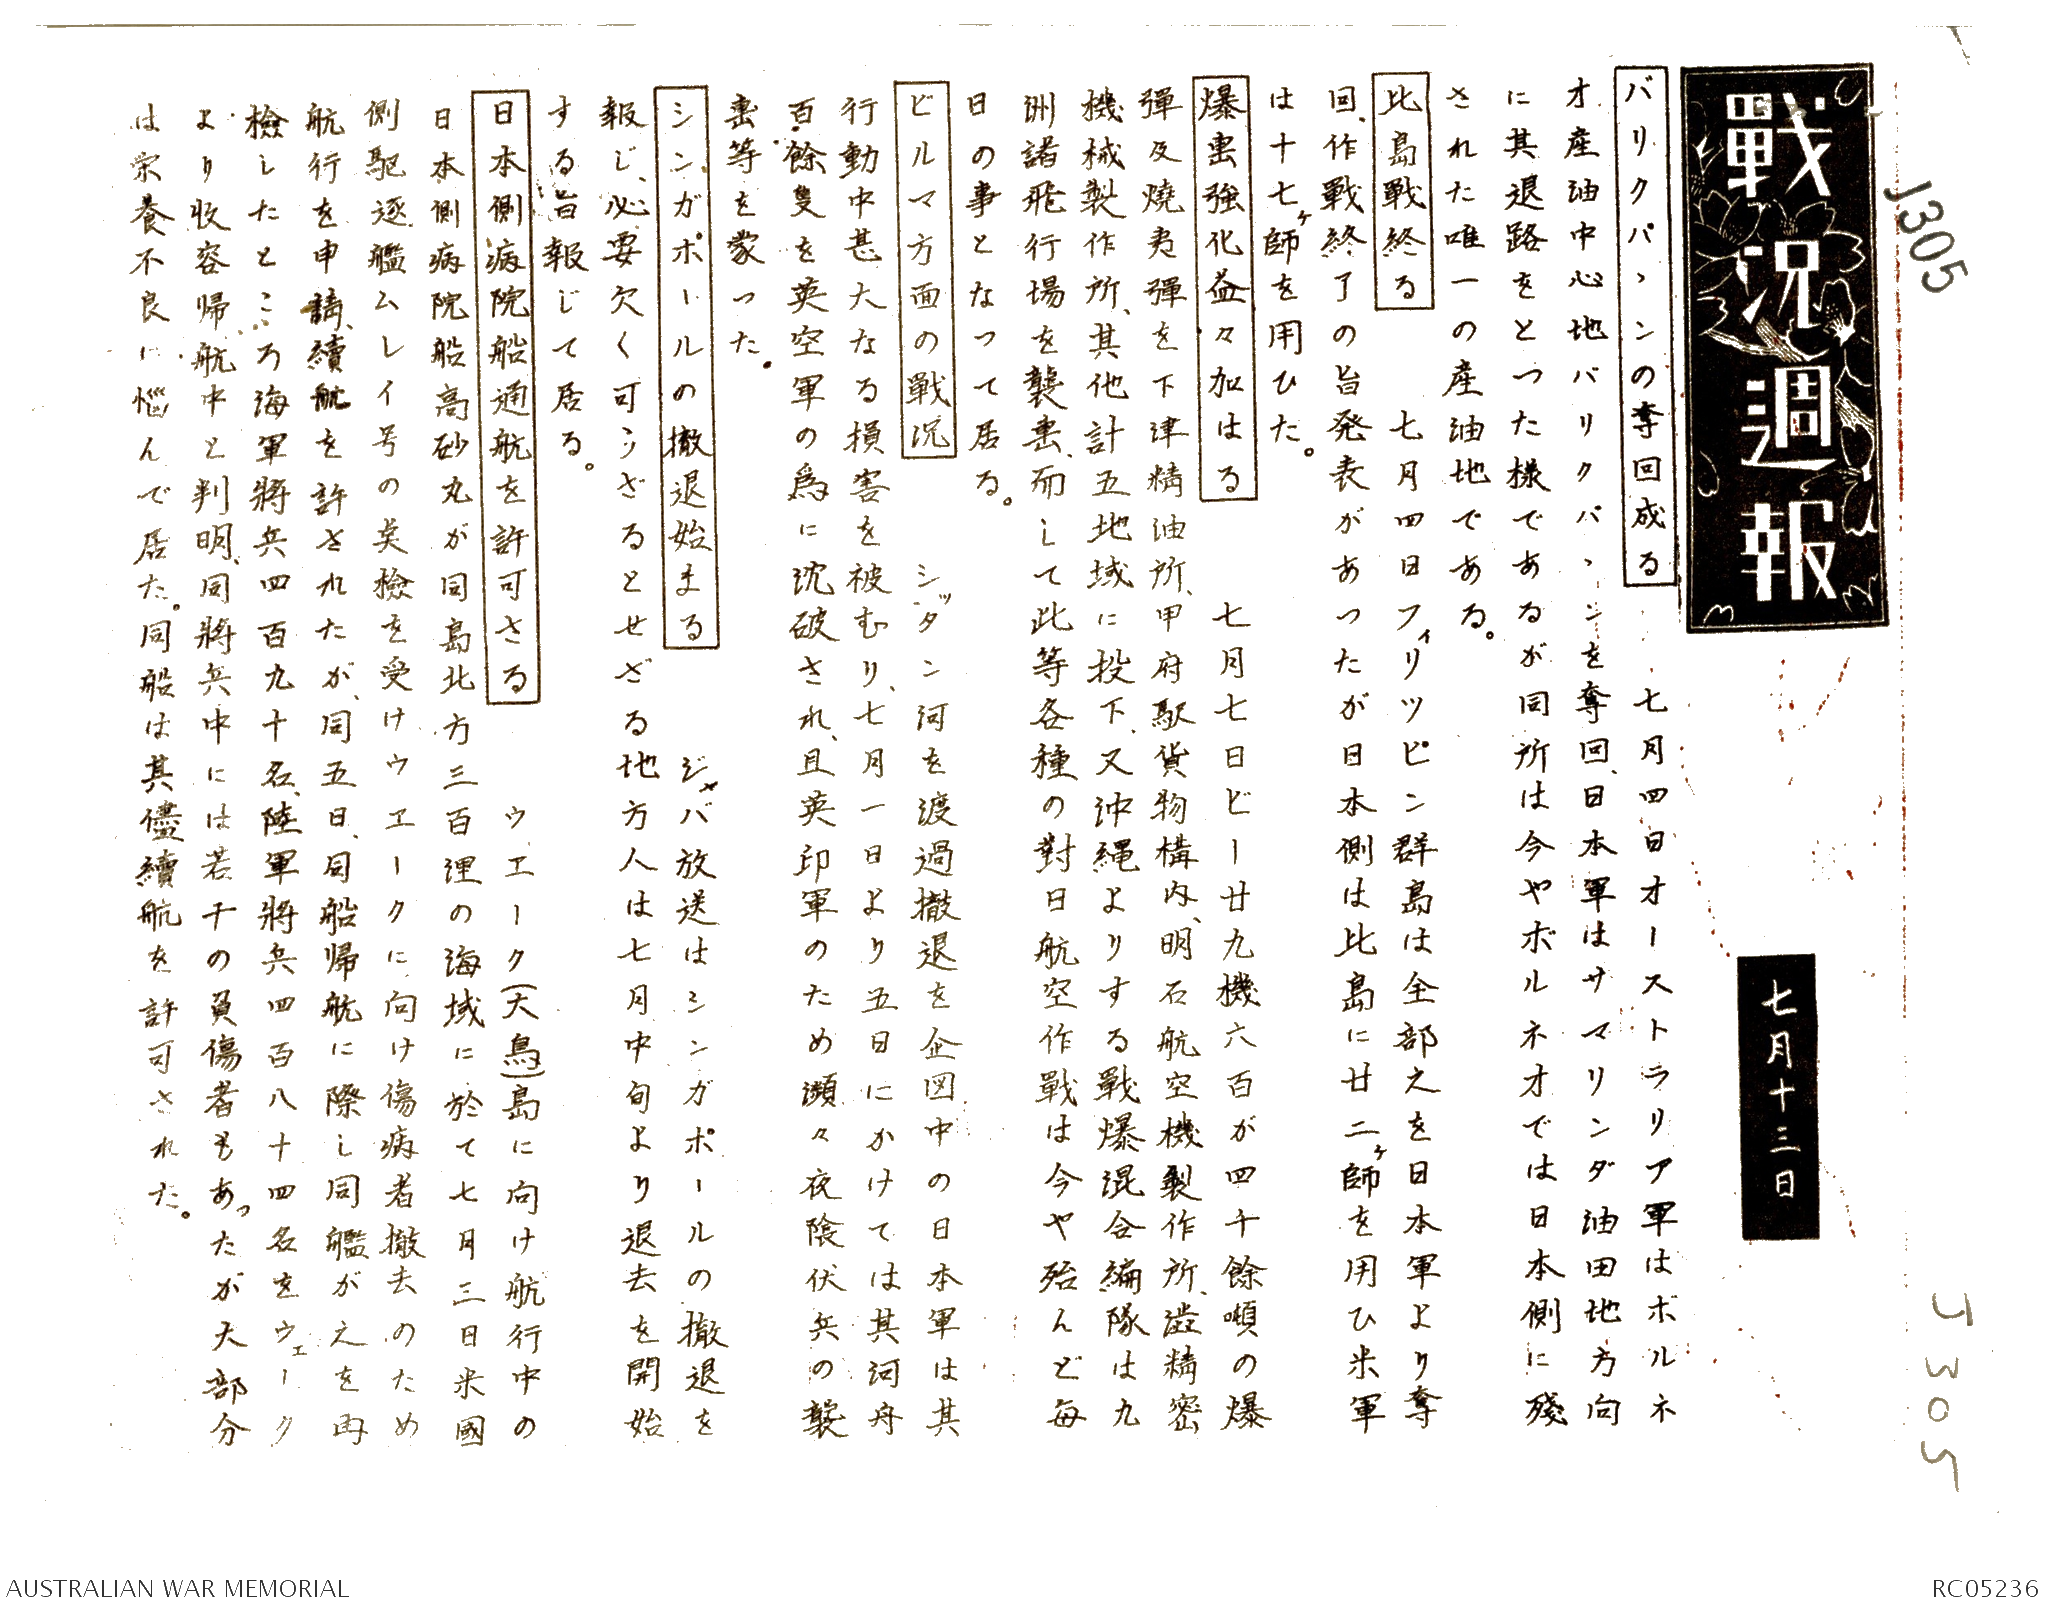 戰況週報
七月十三日
J305
J305
バリクパヽンの奪回成る
七月四日オーストラリア軍はボルネ
オ産油中心地バリクパヽンを奪回、日本軍はサマリンダ油田地方向
に其退路をとつた様であるが同所は今やボルネオでは日本側に殘
された唯一の産油地である。
比島戰終る
七月四日フィリツピン群島は全部之を日本軍より奪
回、作戰終了の旨発表があつたが日本側は比島に廿二ヶ師を用ひ米軍
は十七ヶ師を用ひた。
爆撃強化益々加はる
七月七日ビー廿九機六百が四千餘噸の爆
彈及燒夷彈を下津精油所、甲府駅貨物構内、明石航空機製作所、澁精密
機械製作所、其他計五地域に投下、又沖縄よりする戰爆混合編隊は九
洲諸飛行場を襲撃、而して此等各種の對日航空作戰は今や殆んど毎
日の事となつて居る。
ビルマ方面の戰況
シッタン河を渡過撤退を企図中の日本軍は其
行動中甚大なる損害を被むり、七月一日より五日にかけては其河舟
百餘隻を英空軍の爲に沈破され、且英印軍のため瀕々夜陰伏兵の襲
撃等を蒙つた。
シンガポールの撤退始まる
ジャバ放送はシンガポールの撤退を
報じ、必要欠く可らざるとせざる地方人は七月中旬より退去を開始
する旨報じて居る。
日本側病院船通航を許可さる
ウエーク(大鳥)島に向け航行中の
日本側病院船高砂丸が同島北方三百浬の海域に於て七月三日米國
側駆逐艦ムレイ号の臭檢を受けウエークに向け傷病者撤去のため
航行を申請、續航を許されたが、同五日、同船帰航に際し同艦が之を再
檢したところ海軍將兵四百九十名、陸軍將兵四百八十四名をウェーク
より收容帰航中と判明、同將兵中には若干の負傷者もあつたが大部分
は栄養不良に悩んで居た。同船は其儘續航を許可された。
AUSTRALIAN WAR MEMORIAL
RC05236